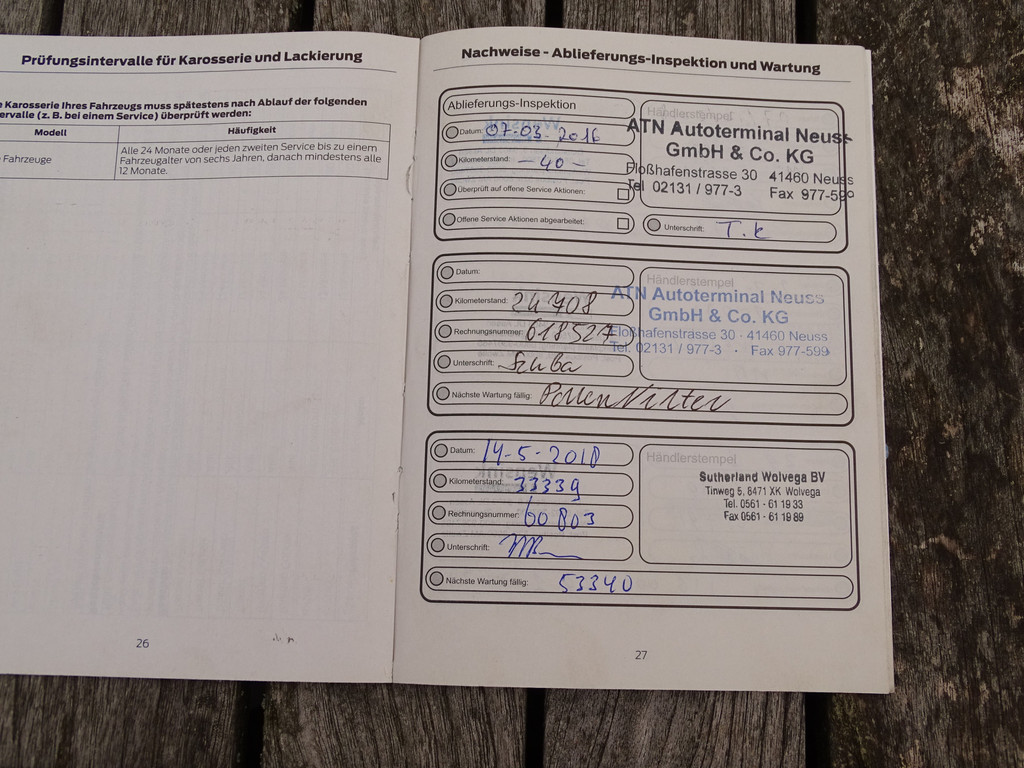 Prüfungsintervalle für Karosserie und Lackierung
Karosserie Ihres Fahrzeugs muss spätestens nach Ablauf der folgenden
ervalle (z. B. bei einem Service) überprüft werden:
Modell
Häufigkeit
Fahrzeuge
Alle 24 Monate oder jeden zweiten Service bis zu einem
Fahrzeugalter von sechs Jahren, danach mindestens alle
12 Monate.
26
Nachweise - Ablieferungs-Inspektion und Wartung
Ablieferungs-Inspektion
Datum: 07-03-2016
Kilometerstand: -40-
Überprüft auf offene Service Aktionen:
Offene Service Aktionen abgearbeitet:
Händlerstempel
ATN Autoterminal Neuss
GmbH & Co. KG
Floßhafenstrasse 30 41460 Neuss
Tel 02131 / 977-3 Fax 977-590
Unterschrift: T.k
Datum:
Kilometerstand: 24708
Rechnungsnummer: 618527
Unterschrift: Szuba
Nächste Wartung fällig: Pollenfilter
Händlerstempel
ATN Autoterminal Neuss
GmbH & Co. KG
Floßhafenstrasse 30 · 41460 Neuss
Tel. 02131 / 977-3 · Fax 977-599
Datum: 14-5-2018
Kilometerstand: 33339
Rechnungsnummer: 60803
Unterschrift:
Nächste Wartung fällig: 53340
Händlerstempel
Sutherland Wolvega BV
Tinweg 5, 8471 XK Wolvega
Tel. 0561 - 61 19 33
Fax 0561 - 61 19 89
27